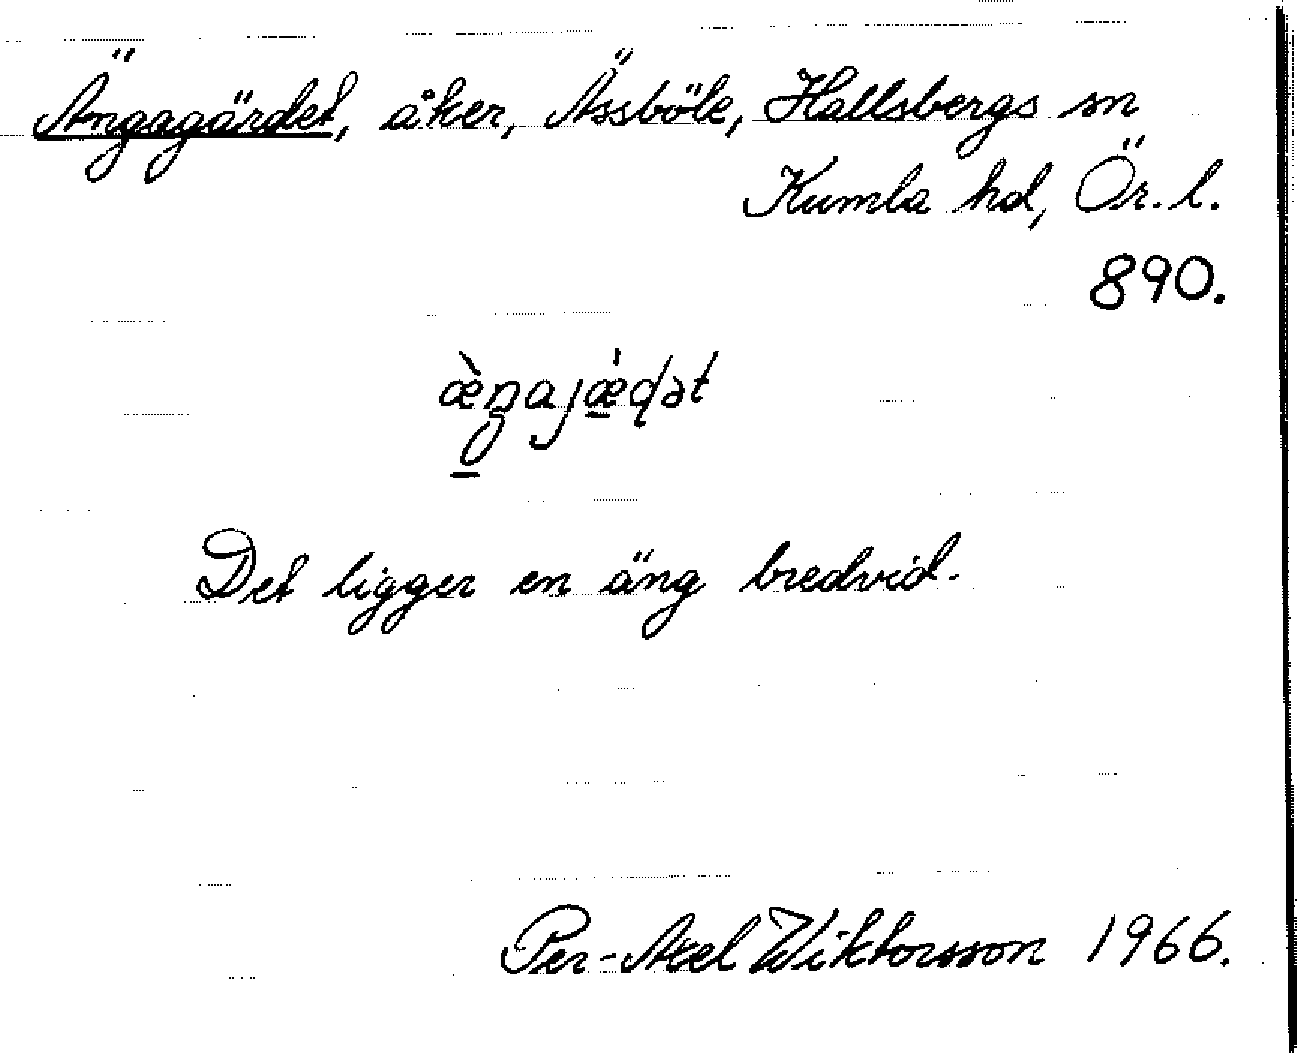 Ängagärdet, åker, Ässböle, Hallsbergs sn
Kumla hd, Ör. l.
890.
æ̀ŋajæ̀ɖət
Det ligger en äng bredvid.
Per-Axel Wiktorsson 1966.